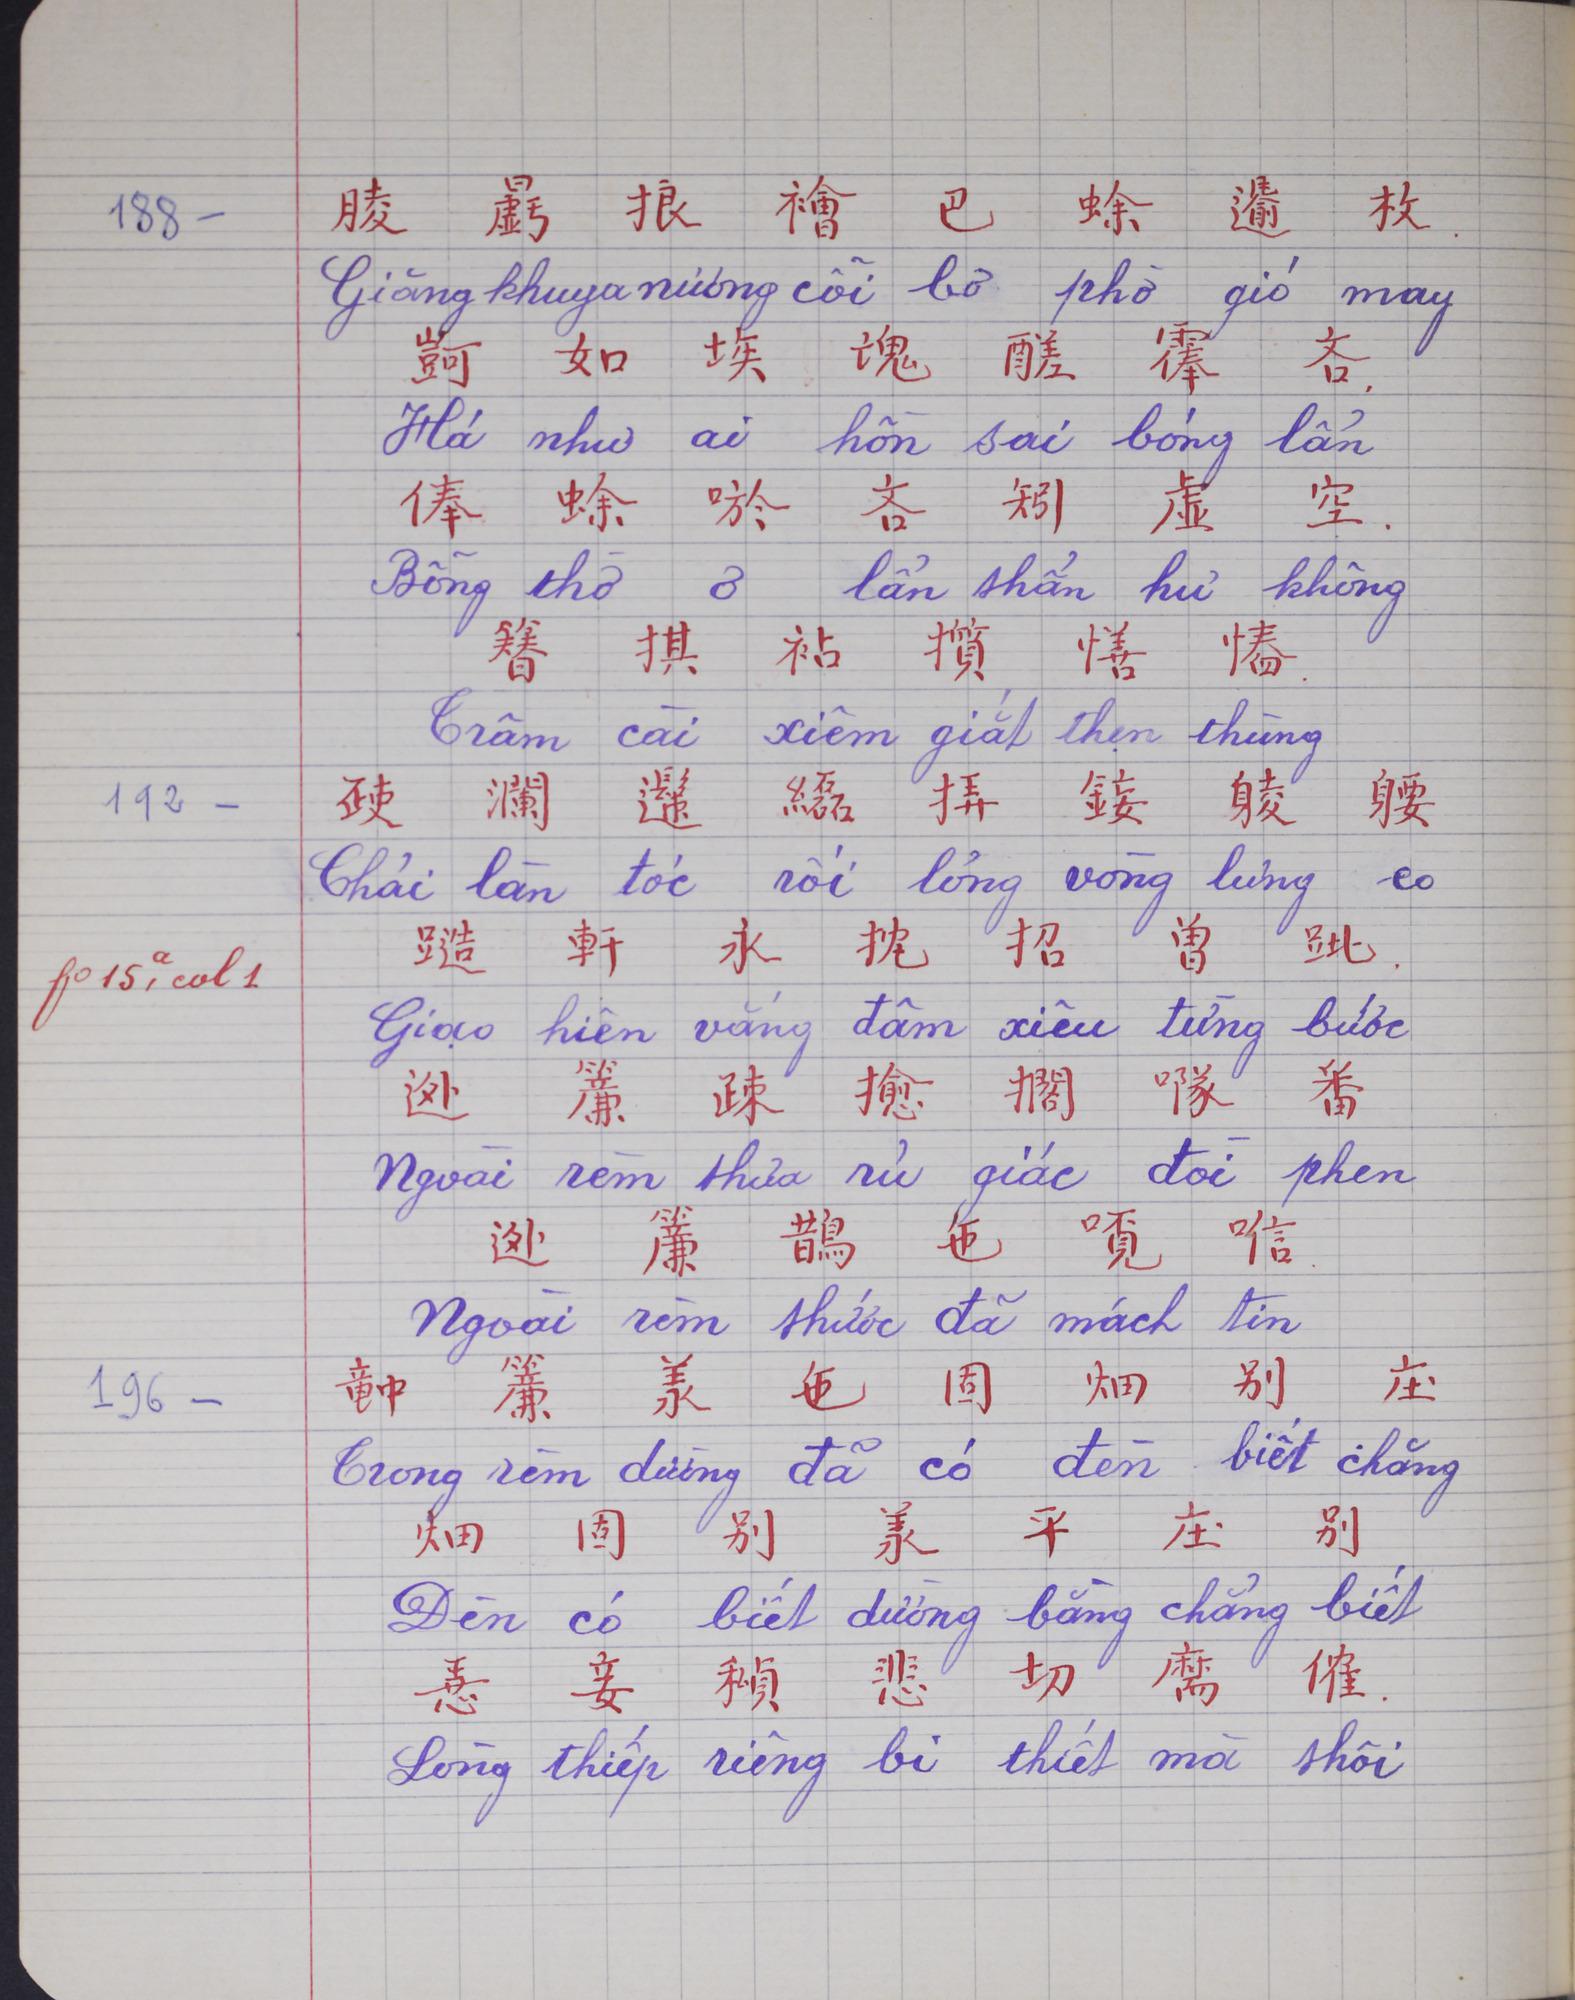 188 - 𦝄 𣌉 挹 襘 巴 蜍 𨘃 枚.
Giăng khuya nương cỗi bơ phờ gió may
𧯶 如 埃 魂 醝 䨦 吝.
Há như ai hồn sai bóng lẩn
俸 蜍 唹 吝 矧 虛 空.
Bỗng thờ ơ lẩn thẩn hư không
簪 掑 袩 攢 𢢆 惷.
Trâm cài xiêm giắt thẹn thùng
192 - 𤴔 瀾 𩯀 𦇒 挵 𨨧 𨉞 腰
Chải làn tóc rối lỏng vòng lưng eo
𨅹 軒 永 扰 招 曾 跐.
fo 15, a col 1
Giạo hiên vắng đâm xiêu từng bước
𨒺 簾 疎 㨤 擱 㗵 番
Ngoài rèm thưa rủ giác đòi phen
𨒺 簾 鵲 㐌 𠼽 信.
Ngoài rèm thước đã mách tin
196 - 𥪞 簾 羕 㐌 固 畑 別 庄
Trong rèm dường đã có đèn biết chăng
畑 固 別 羕 平 庄 別
Đèn có biết dường bằng chẳng biết
𢚸 妾 𥢆 悲 切 𦓡 催.
Lòng thiếp riêng bi thiết mà thôi